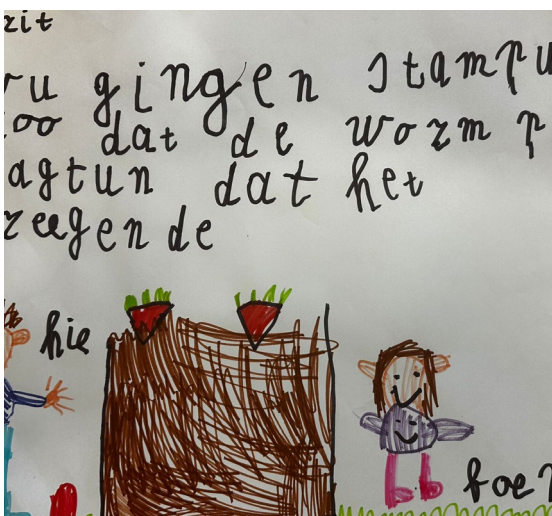 zit
ru gingen stampu
zoo dat de worm p
agtun dat het
reegende
hie
boer